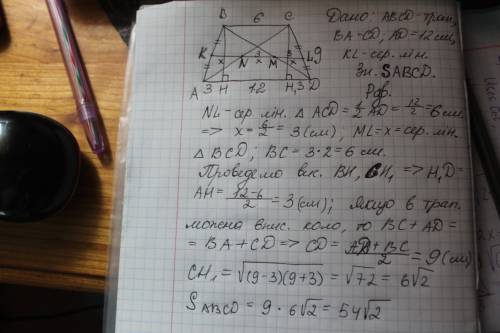 B 6 C
K x N 3 x M 3 x L 9
A 3 H 12 H₁ 3 D
Дано: ABCD-трап,
BA=CD, AD=12см,
KL-сер. лін.
Зн. SABCD.
Розв.
NL-сер. лін. △ ACD = 1/2 AD = 12/2 = 6 см.
=> x = 6/2 = 3 (см), ML = x = сер. лін.
△ BCD; BC = 3·2 = 6 см.
Проведемо вис. BH, CH₁ => H₁D =
AH = 12-6/2 = 3 (см); якщо в трап.
можна впис. коло, то BC + AD =
= BA + CD => CD = AD + BC/2 = 9 (см)
CH₁ = √(9-3)(9+3) = √72 = 6√2
SABCD = 9 · 6√2 = 54√2